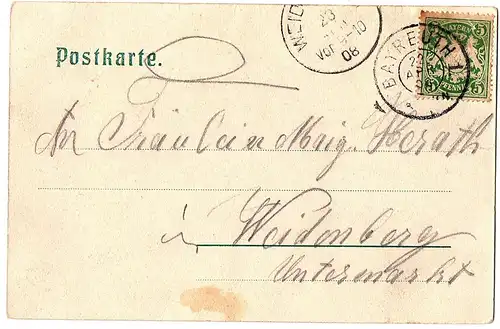 Postkarte.
WEID
23
Vor 9-10
08
BAYREUTH
5 5
PFENNIG
5 5
An Fräulein Marg. Herath
in
Weidenberg
Untermarkt